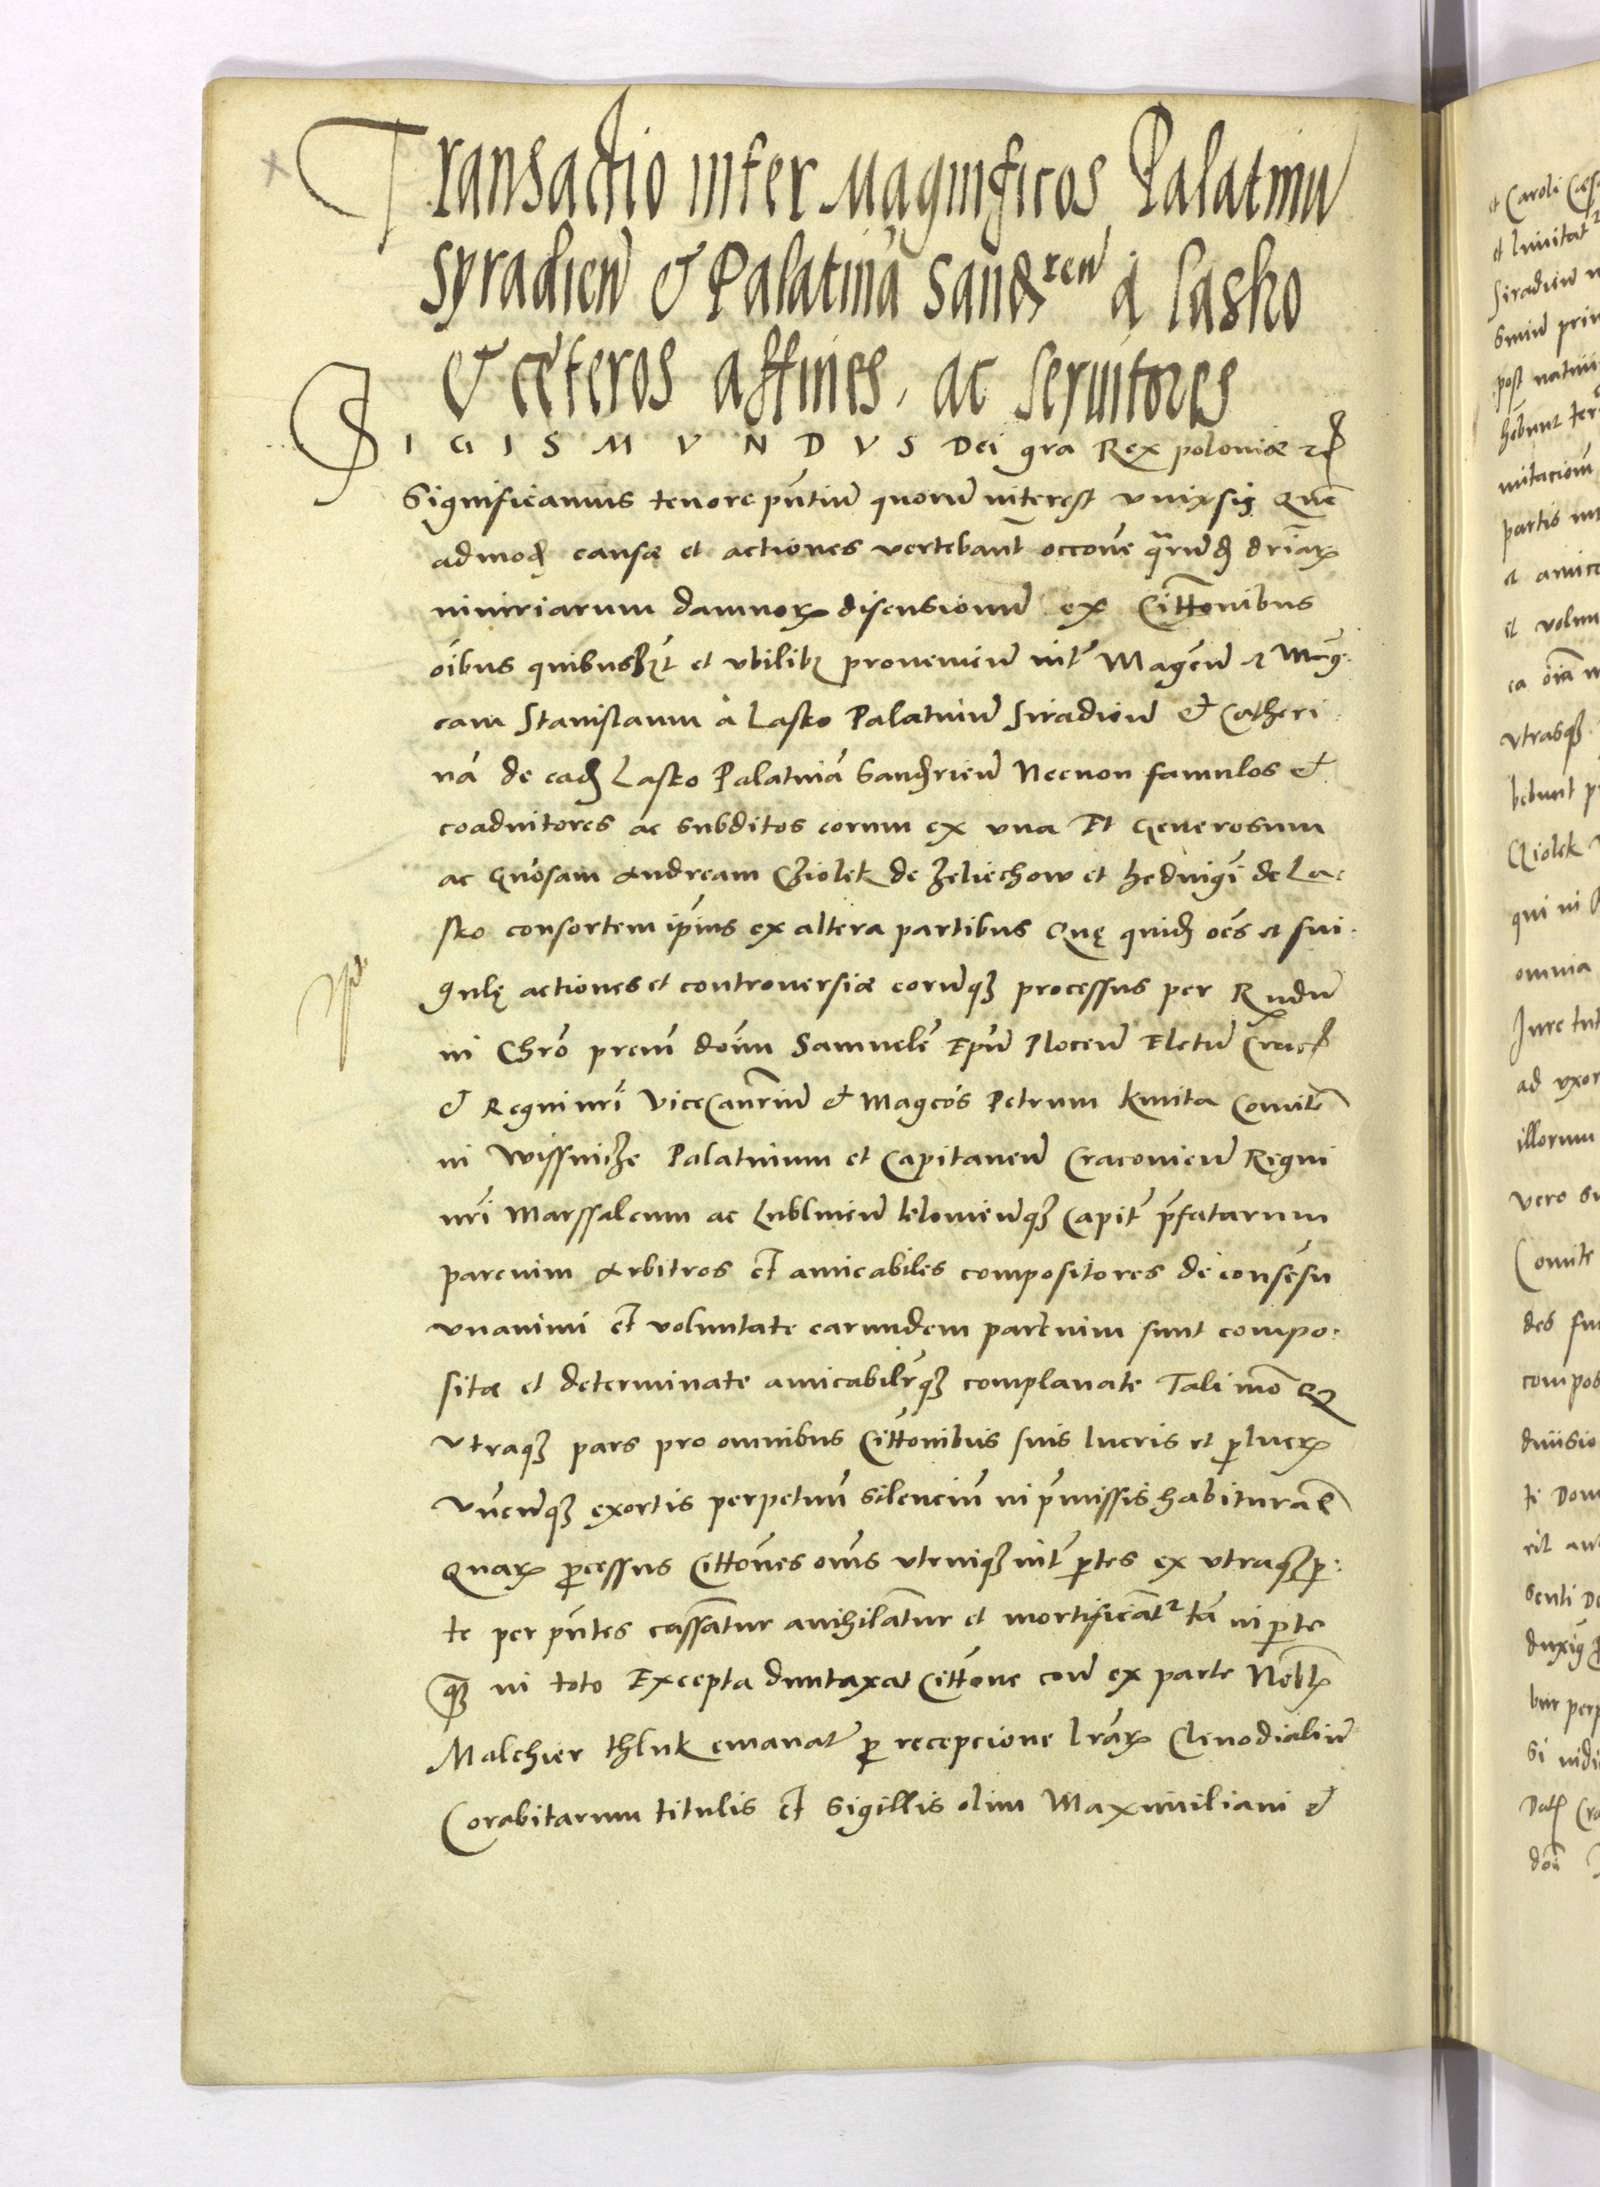 Transactio inter Magnificos Palatinũ
Syradien̄ & Palatinã Sandᵣᵉⁿ à Lasko
& cęteros affines, ac seruitores
SIGISMVNDVS Dei gra Rex poloniæ etc
Significamus tenore pñtium quorum interest vniuersis Quē
admodũ causæ et actiones vertebant̃ occõne quarũdã dr̃iarum
iniuriarum damnorum disensionũ ex Citt̃onibus
oĩbus quibuslibet et vbilibet prouenien̄ int̃ Magcũ et Mag:
cam Stanislaum à Lasko Palatinũ Siradien̄ & Catheri:
nã de eadẽ Lasko Palatinã Sandrien̄ Necnon famulos &
coadiutores ac subditos eorum ex vna Et Generosum
ac Gñosam Andream Cziolek de Zeliechow et heduigẽ de La:
sko consortem ip̃ius ex altera partibus Quę quidẽ oẽs et sin:
gulę actiones et controuersiæ eorumq3 processus per Rndũ
in Chrõ prem̃ dõim Samuelẽ Ep̃m Plocen̄ Eletũ Crac
& Regni nr̃i Vicecanrium & Magcõs Petrum kmita Comitẽ
in Wissnicze Palatinum et Capitaneũ Cracouien̄ Regni
nr̃i Marssalcum ac Lublinen̄ Coloñienq3 Capit̃ p̃fatarum
parcium Arbitros et amicabiles compositores de consẽsu
vnanimi et voluntate earundem partium sunt compo:
sitæ et determinate amicabiliterq3 complanate Tali mõ Q
Vtraq3 pars pro omnibus Citt̃onibus suis lucris et perlucrum
Vñcunq3 exortis perpetuũ silenciũ in p̃missis habitura ẽ
Quarum processus Citt̃ones oms vtrinq3 int̃ partes ex vtraq3 par:
te per pñtes cassantur anihilantur et mortificant² tã in parte
q3 in toto Excepta duntaxat Citt̃one cou ex parte Noblĩs
Malchier thluk emanat̃ pro recepcione lr̃arum Clenodialiũ
Corabitarum titulis et sigillis olim Maximiliani &
et Caroli Cæs